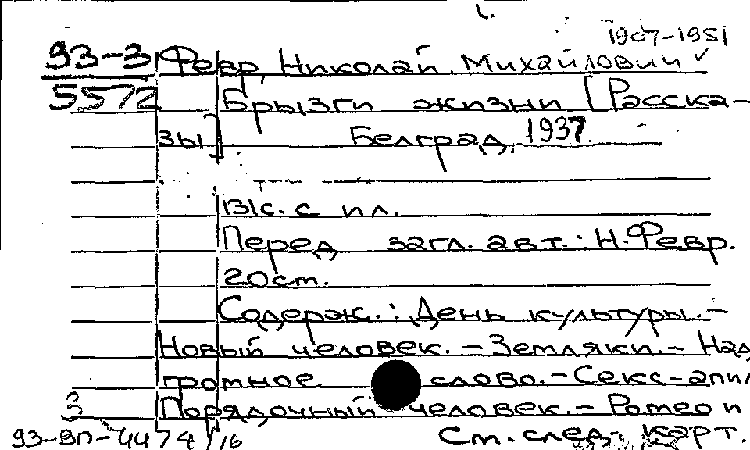 1907-1951
93-3 Февр, Николай Михайлович
5572 Брызги жизни [Расска-
зы] Белград, 1937.
131с. с ил.
Перед загл. авт.: Н. Февр.
20см.
Содерж.: День культуры.-
Новый человек.-Земляки.-Над
громное слово.-Секс-апил
3 Порядочный человек.-Ромео и
93-ВП-4474/16 См. след. карт.